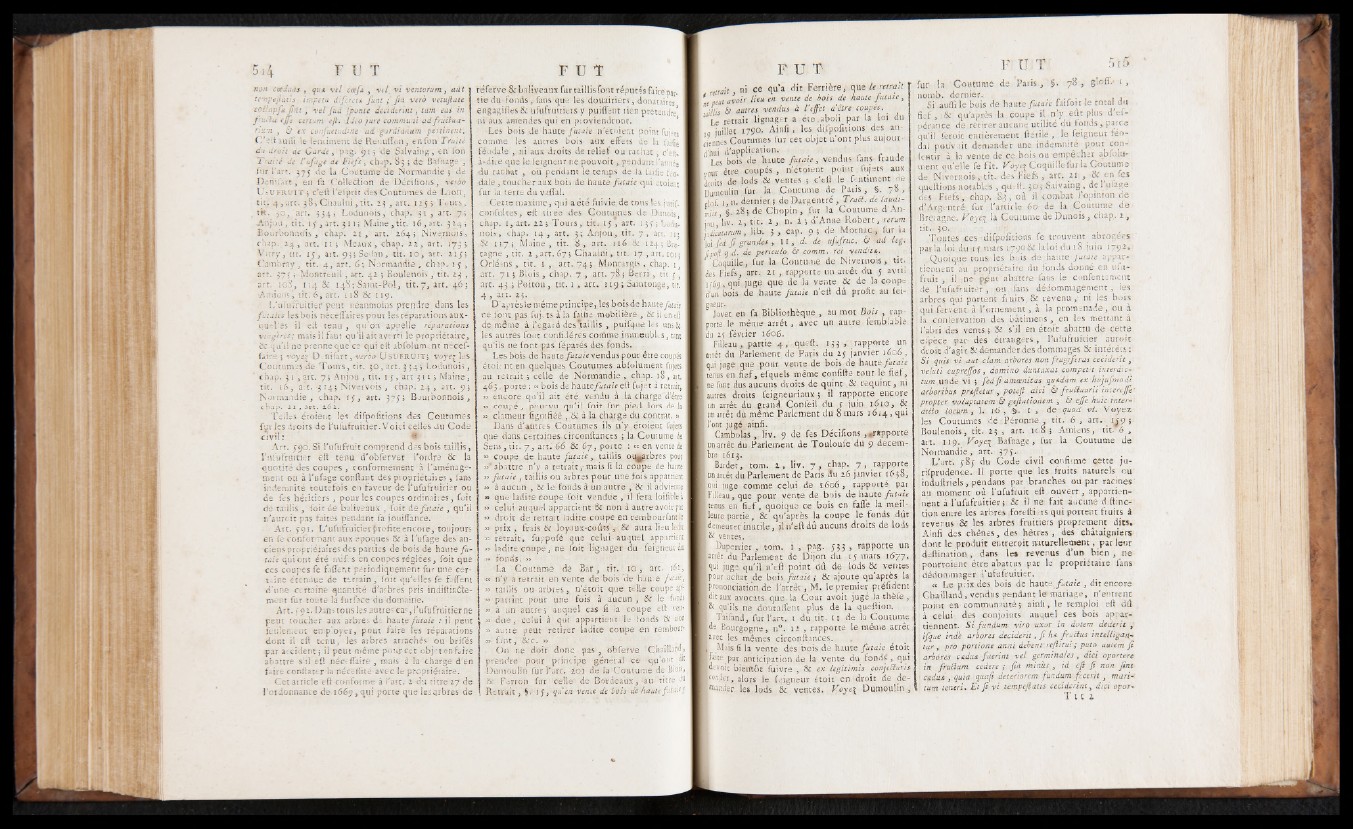 514 FUT FUT
non cædua, quæ vel cæsa, vel vi ventorum, aut
C'est aussi le sentiment de
du droit de Garde, pag. 91 ; de Salvaing, en son
Traité de l'usage de Fiefs, chap. 83 ; de Basnage,
sur l'art. 375 de la Coutume de Normandie ; de
Denisart, en sa Collection de Décisions, verbo
USUFRUIT ; c'est l'esprit des Coutumes de
L'usufruitier peut néanmoins prendre dans les
futaies les bois nécessaires pour les réparations aux-
quelles il est tenu, qu'on appelle réparations
viagères ; mais il faut qu'il ait averti le propriétaire,
& qu'il ne prenne que ce qui est absolument néces-
saire ; voyez Denisart, verbo USUFRUIT ; voyez les
Coutumes de Tours, tit. 30, art. 334 ; Lodunois,
Telles étoient les dispositions des Coutumes
sur les droits de l'usufruitier. Voici celles du Code
civil :
Art. 590. Si l'usufruit comprend des bois taillis,
l'usufruitier est tenu d'observer l'ordre & la
quotité des coupes, conformément à l'aménage-
ment ou à l'usage constant des propriétaires ; sans
indemnité toutefois en faveur de l'usufruitier ou
de ses héritiers, pour les coupes ordinaires, soit
de taillis, soit de baliveaux, soit de futaie, qu'il
n'auroit pas faites pendant sa jouissance.
Art. 591. L'usufruitier profite encore, toujours
en se conformant aux époques & à l'usage des an-
ciens propriétaires des parties de bois de haute fu-
taie qui ont été mises en coupes réglées, soit que
ces coupes se fissent périodiquement sur une cer-
taine étendue de terrain, soit qu'elles se fissent
d'une certaine quantité d'arbres pris indistincte-
ment sur toute la surface du domaine.
Art. 592. Dans tous les autres cas, l'usufruitier ne
peut toucher aux arbres de haute futaie : il peut
seulement employer, pour faire les réparations
dont il est tenu, les arbres arrachés ou brisés
par accident ; il peut même pour cet objet en faire
abattre s'il est nécessaire, mais à la charge d'en
faire constater la nécessité avec le propriétaire.
Cet article est conforme à l'art. 2 du titre 27 de
l'ordonnance de 1669, qui porte que les arbres de
réserve & baliveaux sur taillis sont réputés faire par-
tie du fonds, sans que les douairiers, donataires,
engagistes & usufruitiers y puissent rien prétendre,
ni aux amendes qui en proviendront.
Les bois de haute futaie n'étoient point sujets
comme les autres bois aux effets de la saisie
féodale, ni aux droits de relief ou rachat ; c'est-
à-dire que le seigneur ne pouvoit, pendant l'année
du rachat, ou pendant le temps de la saisie féo-
dale, toucher aux bois de haute futaie qui étoient
sur la terre du vassal.
D'après le même principe, les bois de haute futaie
ne sont pas sujets à la saisie mobiliaire, & il en est
de même à l'égard des taillis, puisque les uns &
les autres sont considérés comme immeubles, tant
qu'ils ne sont pas séparés des fonds.
Les bois de haute futaie vendus pour être coupés
étoient en quelques Coutumes absolument sujets
au retrait ; celle de Normandie, chap. 18, art.
463, porte : « bois de haute futaie est sujet à retrait,
» encore qu'il ait été vendu à la charge d'être
» coupé, pourvu qu'il soit sur pied lors de la
» clameur signifiée, & à la charge du contrat. »
Dans d'autres Coutumes ils n'y étoient sujets
que dans certaines circonstances ; la Coutume de
Sens, tit. 7, art. 66 & 67, porte : « en vente &
» coupe de haute futaie, taillis ou arbres pour
» abattre n'y a retrait ; mais si la coupe de haute
» futaie, taillis ou arbres pour une fois appartient
» à aucun, & le fonds à un autre, & il advienne
» que ladite coupe soit vendue, il sera loisible à
» celui auquel appartient & non à autre avoir par
» droit de retrait ladite coupe en remboursant le
» prix, frais & loyaux-coûts, & aura lieu ledit
» retrait, supposé que celui auquel appartient
» ladite coupe, ne soit lignager du seigneur du
» fonds. »
La Coutume de Bar, tit. 10, art. 161,
» n'y a retrait en vente de bois de haute futaie,
» taillis ou arbres, n'étoit que telle coupe ap-
» partînt pour une fois à aucun, & le fonds
» à un autre ; auquel cas si la coupe est ven-
» due, celui à qui appartient le fonds & non
» autre peut retirer ladite coupe en rembour-
» sant, &c. »
On ne doit donc pas, observe Chailland,
prendre pour principe général ce qu'ont dit
Dumoulin sur l'art. 201 de la Coutume de Blois,
& Ferron sur celle de Bordeaux, au titre du
Retrait, §. 15, qu'en vente de bois de haute futaie,
FUT FUT 515
retrait, ni ce qu'a dit Ferrière, que le retrait
ne peut avoir lieu en vente de bois de haute futaie,
taillis & autres vendus à l'effet d'être coupés.
Le retrait lignager a été aboli par la loi du
19 juillet 1790. Ainsi, les dispositions des an-
ciennes Coutumes sur cet objet n'ont plus aujour-
d'hui d'application.
Les bois de haute futaie, vendus sans fraude
pour être coupés, n'étoient point sujets aux
droits de lods & ventes ; c'est le sentiment de
Dumoulin sur la Coutume de Paris, §. 78,
Coquille, sur la Coutume de Nivernois, tit.
des Fiefs, art. 21, rapporte un arrêt du 5 avril
1569, qui juge que de la vente & de la coupe
d'un bois de haute futaie n'est dû profit au sei-
gneur.
Jovet en sa Bibliothèque, au mot Bois, rap-
porte le même arrêt, avec un autre semblable
du 25 février 1606.
Filleau, partie 4, quest. 133, rapporte un
arrêt du Parlement de Paris du 25 janvier 1606,
qui juge que pour vente de bois de haute futaie
tenus en fief, esquels même consiste tout le fief,
ne sont dus aucuns droits de quint & requint, ni
autres droits seigneuriaux ; il rapporte encore
un arrêt du grand Conseil du 5 juin 1610, &
un arrêt du même Parlement du 8 mars 1614, qui
l'ont jugé ainsi.
Cambolas, liv. 9 de ses Décisions, rapporte
un arrêt du Parlement de Toulouse du 9 décem-
bre 1613.
Bardet, tom. 2, liv. 7, chap. 7, rapporte
un arrêt du Parlement de Paris du 26 janvier 1638,
qui juge comme celui de 1606, rapporté par
Filleau, que pour vente de bois de haute futaie
tenus en fief, quoique ce bois en fasse la meil-
leure partie, & qu'après la coupe le fonds dût
demeurer inutile, il n'est dû aucuns droits de lods
& ventes.
Duperrier, tom. 2, pag. 533, rapporte un
arrêt du Parlement de Dijon du 15 mars 1677,
qui juge qu'il n'est point dû de lods & ventes
pour achat de bois futaie ; & ajoute qu'après la
prononciation de l'arrêt, M. le premier président
dit aux avocats que la Cour avoit jugé la thèse,
& qu'ils ne doutassent plus de la question.
Taisand, sur l'art. 1 du tit. 11 de la Coutume
de Bourgogne, n°. 12, rapporte le même arrêt
avec les mêmes circonstances.
Mais si la vente des bois de haute futaie étoit
faite par anticipation de la vente du fonds, qui
devroit bientôt suivre, & ex legitimis conjecturis
constet, alors le seigneur étoit en droit de de-
mander les lods & ventes. Voyez Dumoulin,
sur la Coutume de Paris, §. 78, glose 1,
nomb. dernier.
Si aussi le bois de haute futaie faisoit le total du
fief, & qu'après la coupe il n'y eût plus d'es-
pérance de retirer aucune utilité du fonds, parce
qu'il seroit entièrement stérile, le seigneur féo-
dal pouvoit demander une indemnité pour con-
sentir à la vente de ce bois ou empêcher absolu-
ment qu'elle se fît. Voyez Coquille sur la Coutume
de Nivernois, tit. des Fiefs, art. 21, & en ses
questions notables, quest. 30 ; Salvaing, de l'usage
des Fiefs, chap. 83, où il combat l'opinion de
d'Argentré sur l'article 60 de la Coutume de
Bretagne. Voyez la Coutume de Dunois, chap. 1,
tit. 30.
Toutes ces dispositions se trouvent abrogées
par la loi du 15 mars 1790 & la loi du 18 juin 1792.
Quoique tous les bois de haute futaie appar-
tiennent au propriétaire du fonds donné en usu-
fruit, il ne peut abattre sans le consentement
de l'usufruitier, ou sans dédommagement, les
arbres qui portent fruits & revenu, ni les bois
qui servent à l'ornement, à la promenade, ou à
la conservation des bâtimens, en les mettant à
l'abri des vents ; & s'il en étoit abattu de cette
espèce par des étrangers, l'usufruitier auroit
droit d'agir & demander des dommages & intérêts :
Si quis vi aut clam arbores non frugiferas ceciderit,
veluti cupressos, domino duntaxat competit interdic-
tum unde vi ; sed si amœnitas quædam ex hujusmodi
arboribus præstetur, potest dici & fructuarii interesse
propter voluptatem & gestationem, & esse huic inter-
dicto locum, l. 16, §. 1, de quod vi. Voyez
les Coutumes de Péronne, tit. 6, art. 159 ;
Boulenois, tit. 23, art. 108 ; Amiens, tit. 6,
art. 119. Voyez Basnage, sur la Coutume de
Normandie, art. 375.
L'art. 585 du Code civil confirme cette ju-
risprudence. Il porte que les fruits naturels ou
industriels, pendans par branches ou par racines
au moment où l'usufruit est ouvert, appartien-
nent à l'usufruitier ; & il ne fait aucune distinc-
tion entre les arbres forestiers qui portent fruits à
revenus & les arbres fruitiers proprement dits.
Ainsi des chênes, des hêtres, des châtaigniers
dont le produit entreroit naturellement, par leur
destination, dans les revenus d'un bien, ne
pourroient être abattus par le propriétaire sans
dédommager l'usufruitier.
« Le prix des bois de haute futaie, dit encore
Chailland, vendus pendant le mariage, n'entrent
point en communauté ; ainsi, le remploi est dû
à celui des conjoints auquel ces bois appar-
tiennent. Si fundum viro uxor in dotem dederit,
isque inde arbores deciderit, si hæ fructus intelligan-
tur, pro portione anni debent restitui ; puto autem si
arbores cæduæ fuerint vel germinales, dici oportere
in fructum cedere ; sin minùs, id est si non sint
cæduæ, quia quasi deteriorem fundum fecerit, mari-
tum teneri. Et si vi tempestatis ceciderint, dici opor-
Ttt 2